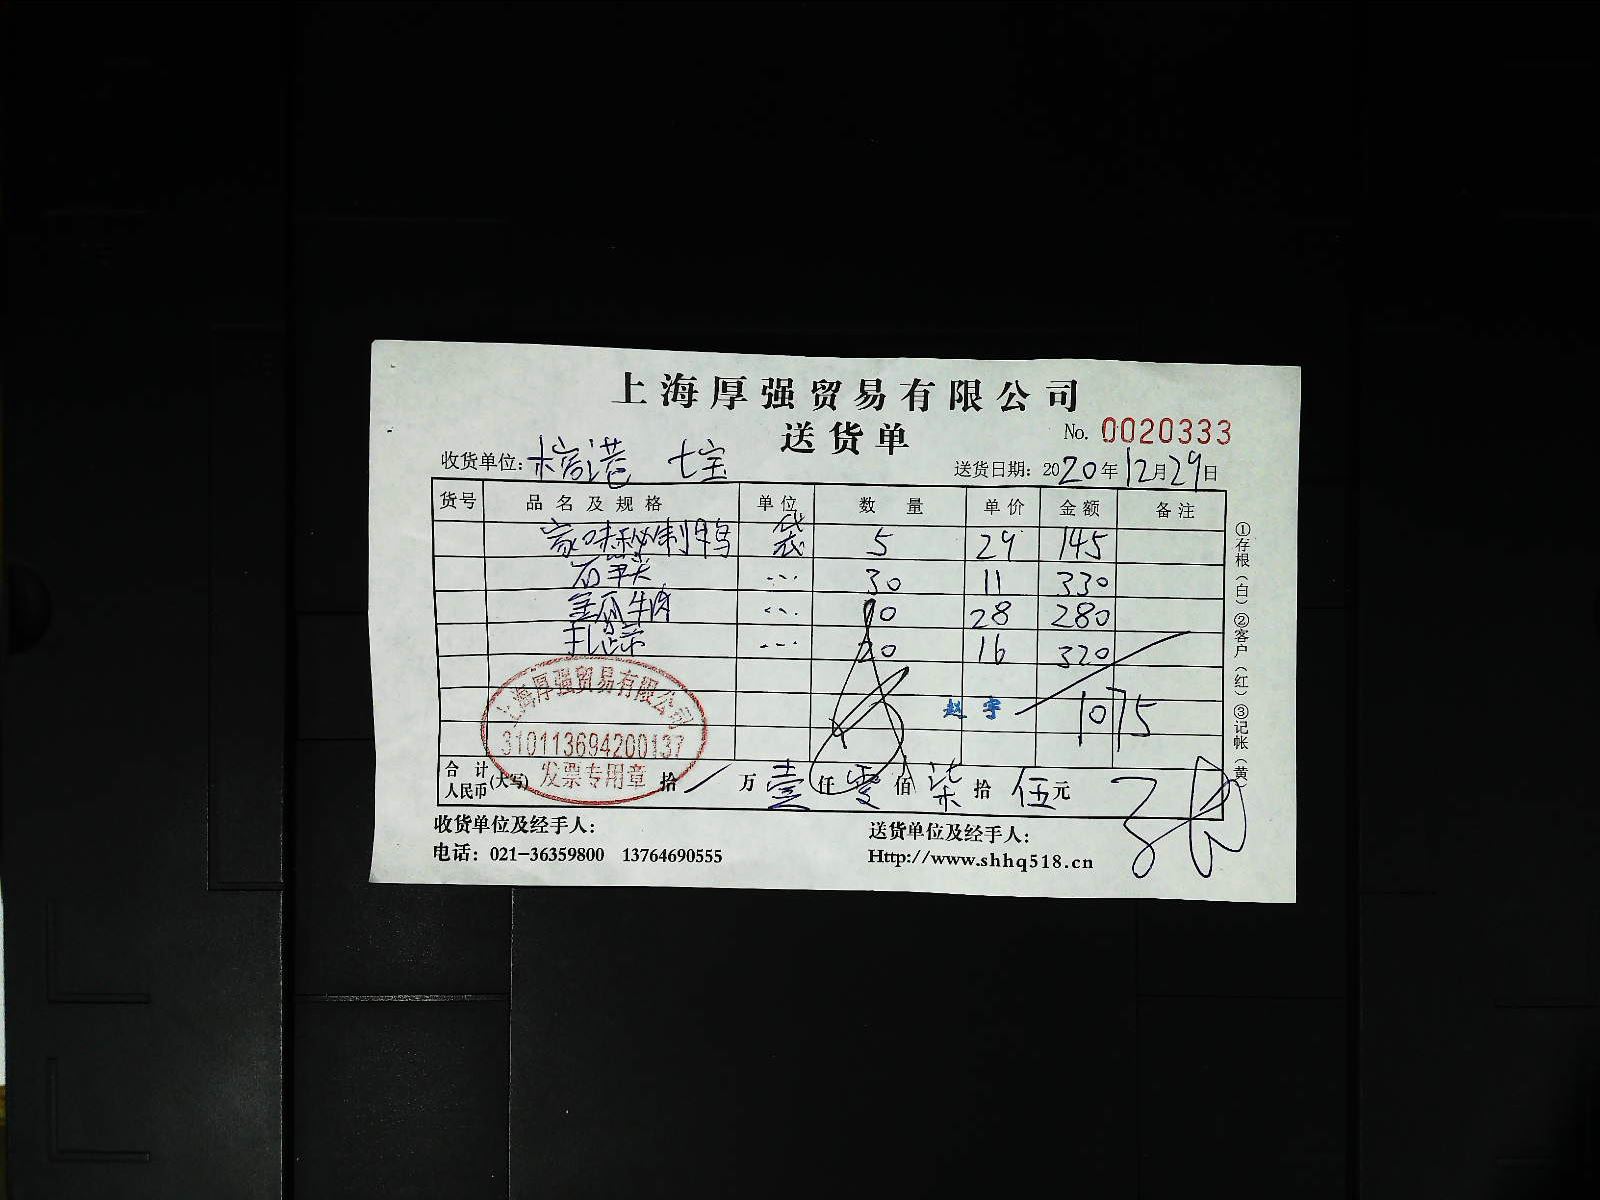 上海厚强贸易有限公司
送货单
No. 0020333
收货单位: 港 七宝
送货日期: 2020年12月29日
货号 品名及规格 单位 数量 单价 金额 备注
家味秘制鸭 袋 5 29 145
30 11 330
金瓜牛肉 10 28 280
扎蹄 20 16 320
赵宇 1075
上海厚强贸易有限公司
310113694200137
发票专用章
合计人民币(大写) 拾 万 壹 仟 零 佰 柒 拾 伍 元
收货单位及经手人:
送货单位及经手人:
电话: 021-36359800 13764690555
Http://www.shhq518.cn
①存根(白)②客户(红)③记帐(黄)